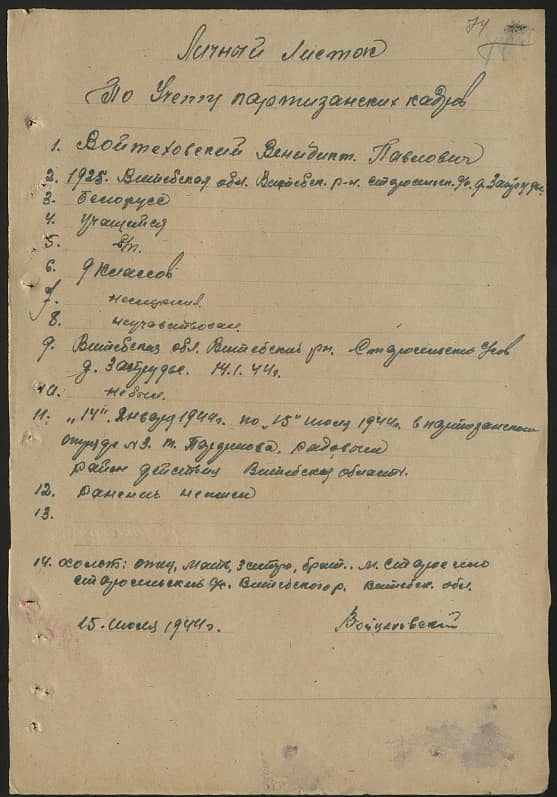 74
Личный Листок
По Учету партизанских кадров
1. Войтеховский Венидикт. Павлович
2. 1925. Витебская обл. Витебск. р-н.
3. Белорусс
4. Учащийся
5. б/п.
6. 9 классов
7.
8. неучавствовал
9. Витебская обл. Витебский рн.
д. Затрудье. 14.1.44г.
10. небыл.
11. „14". Января 1944г. по „15" июля 1944г. в партизанском
отряде №3. т. рядовым
район действия Витебская область.
12. ранений неимел
13.
14. холост: отец, мать, брат.. м. Старосельно
старосельский Витебского р. Витебск. обл.
15. июля 1944г. Войцеховский